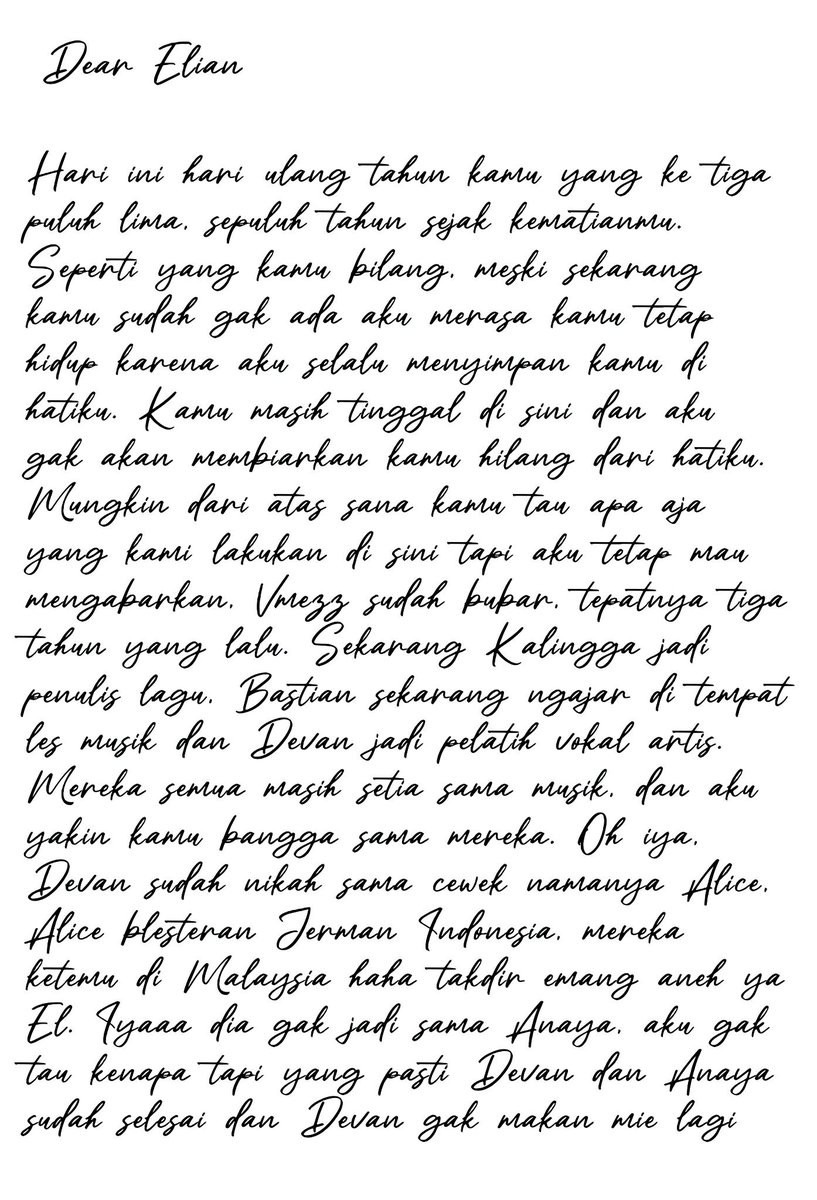 Dear Elian
Hari ini hari ulang tahun kamu yang ke tiga
puluh lima, sepuluh tahun sejak kematianmu.
Seperti yang kamu bilang, meski sekarang
kamu sudah gak ada aku merasa kamu tetap
hidup karena aku selalu menyimpan kamu di
hatiku. Kamu masih tinggal di sini dan aku
gak akan membiarkan kamu hilang dari hatiku.
Mungkin dari atas sana kamu tau apa aja
yang kami lakukan di sini tapi aku tetap mau
mengabarkan, Vmezz sudah bubar, tepatnya tiga
tahun yang lalu. Sekarang Kalingga jadi
penulis lagu, Bastian sekarang ngajar di tempat
les musik dan Devan jadi pelatih vokal artis.
Mereka semua masih setia sama musik, dan aku
yakin kamu bangga sama mereka. Oh iya,
Devan sudah nikah sama cewek namanya Alice,
Alice blesteran Jerman Indonesia, mereka
ketemu di Malaysia haha takdir emang aneh ya
El. Iyaaa dia gak jadi sama Anaya, aku gak
tau kenapa tapi yang pasti Devan dan Anaya
sudah selesai dan Devan gak makan mie lagi